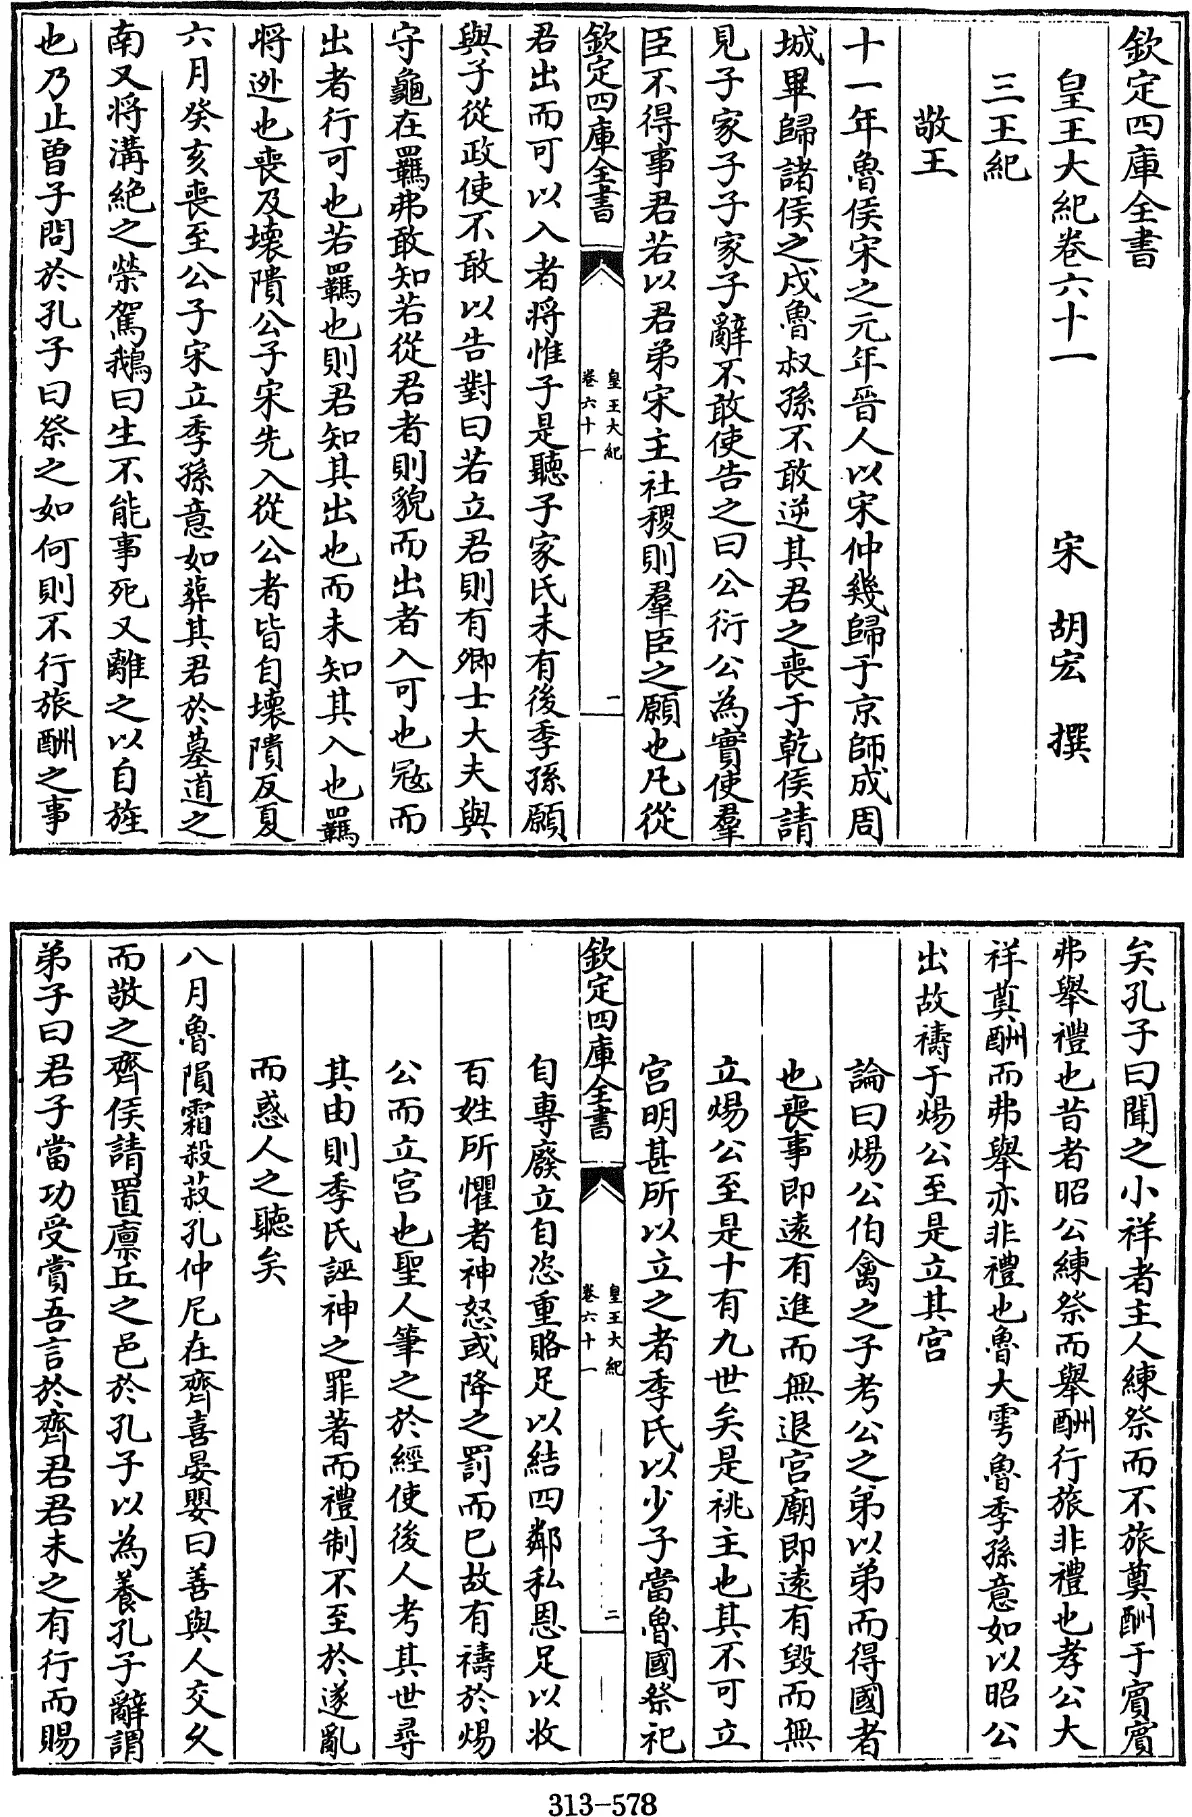 欽定四庫全書
皇王大紀卷六十一　　宋　胡宏　撰
三王紀
敬王
十一年魯侯宋之元年晉人以宋仲幾歸于京師成周
城畢歸諸侯之戍魯叔孫不敢逆其君之喪于乾侯請
見子家子子家子辭不敢使告之曰公衍公為實使羣
臣不得事君若以君弟宋主社稷則羣臣之願也凡從
欽定四庫全書
皇王大紀
卷六十一
一
君出而可以入者將惟子是聽子家氏未有後季孫願
與子從政使不敢以告對曰若立君則有卿士大夫與
守龜在羈弗敢知若從君者則貌而出者入可也寇而
出者行可也若羈也則君知其出也而未知其入也羈
將逊也喪及壞隤公子宋先入從公者皆自壞隤反夏
六月癸亥喪至公子宋立季孫意如葬其君於墓道之
南又將溝絶之榮駕鵝曰生不能事死又離之以自旌
也乃止曽子問於孔子曰祭之如何則不行旅酬之事
矣孔子曰聞之小祥者主人練祭而不旅奠酬于賓賓
弗舉禮也昔者昭公練祭而舉酬行旅非禮也孝公大
祥奠酬而弗舉亦非禮也魯大雩魯季孫意如以昭公
出故禱于煬公至是立其宫
論曰煬公伯禽之子考公之弟以弟而得國者
也喪事即逺有進而無退宫廟即逺有毀而無
立煬公至是十有九世矣是祧主也其不可立
宫明甚所以立之者季氏以少子當魯國祭祀
欽定四庫全書
皇王大紀
卷六十一
二
自專廢立自恣重賂足以結四鄰私恩足以收
百姓所懼者神怒或降之罰而已故有禱於煬
公而立宫也聖人筆之於經使後人考其世尋
其由則季氏誣神之罪著而禮制不至於遂亂
而惑人之聽矣
八月魯隕霜殺菽孔仲尼在齊喜晏嬰曰善與人交久
而敬之齊侯請置廪丘之邑於孔子以為養孔子辭謂
弟子曰君子當功受賞吾言於齊君君未之有行而賜
313-578